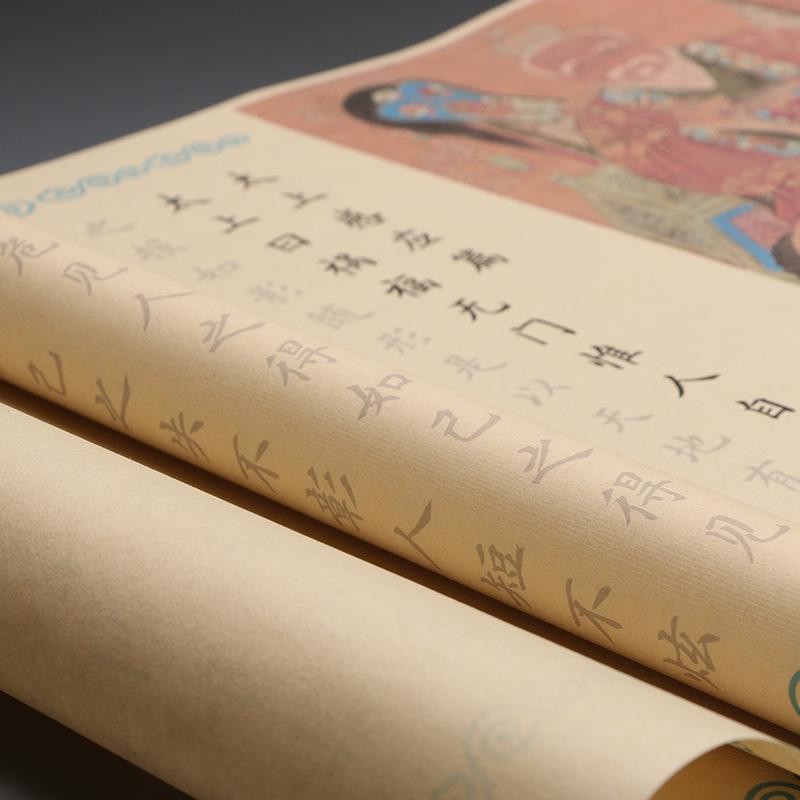 太上感应篇
太上曰祸福无门惟人自
之报如影随形是以天地有
危见人之得如己之得见
己之失不彰人短不炫